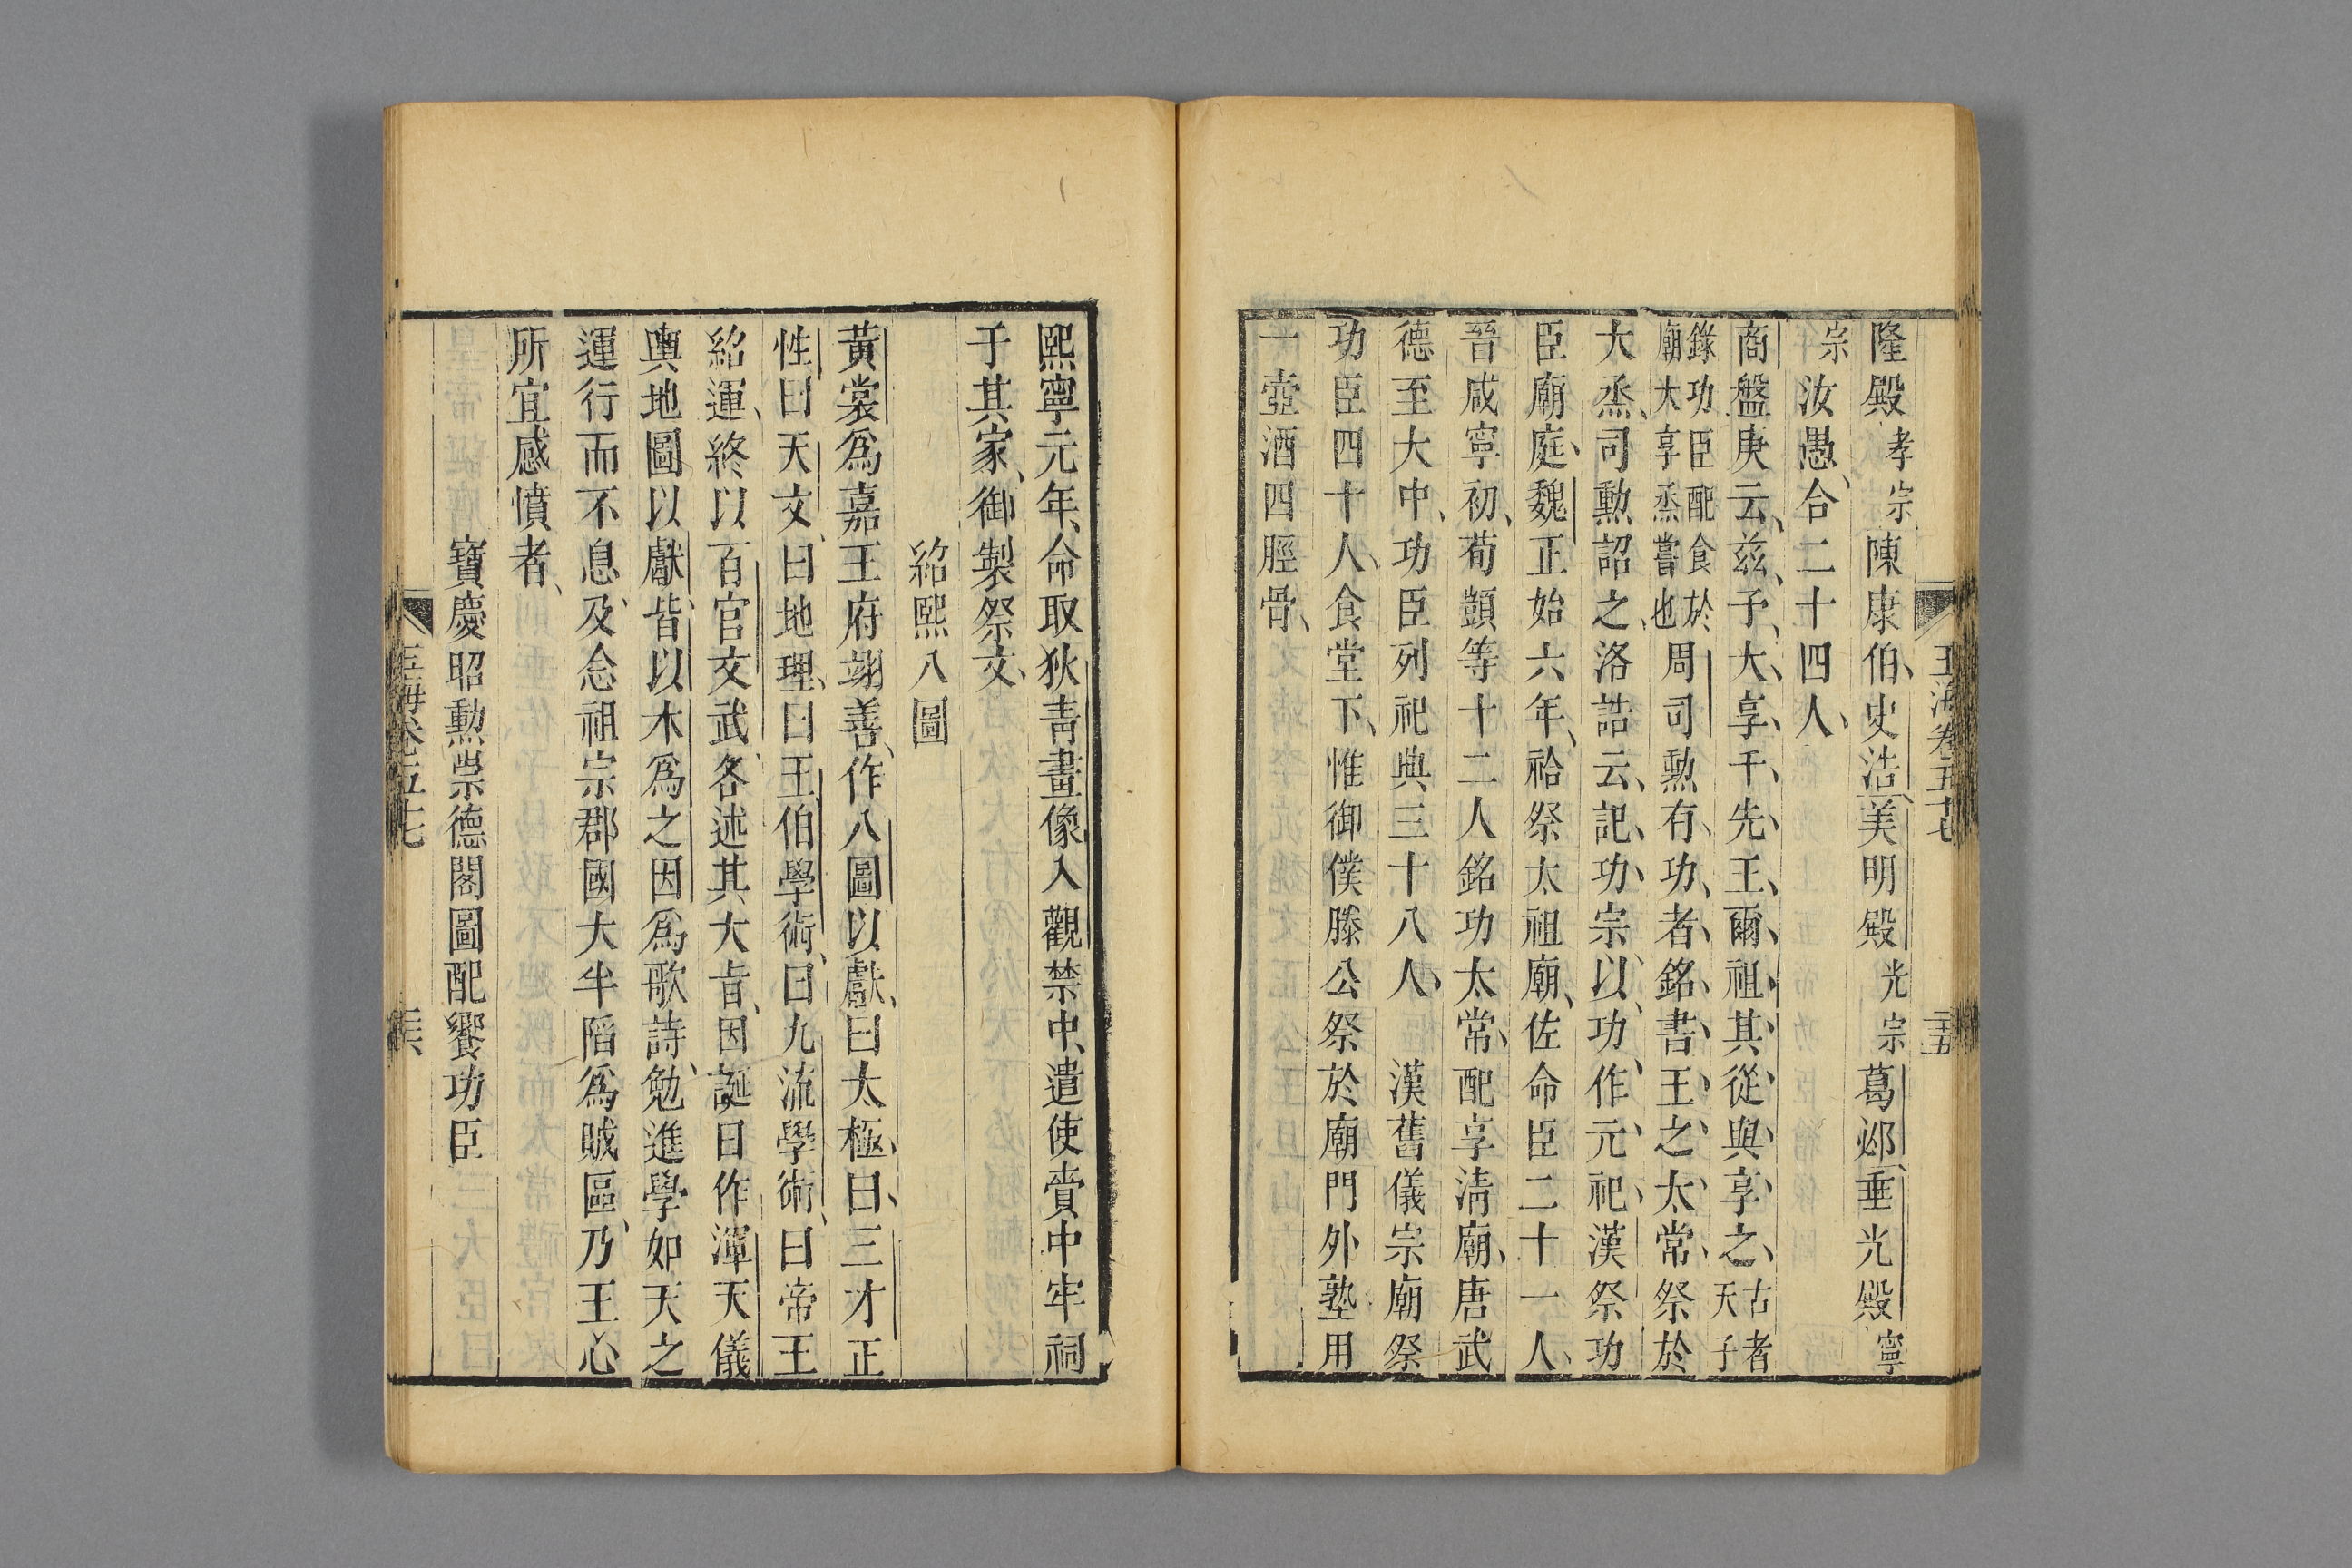 玉海卷五十七
二十五
隆殿孝宗陳康伯、史浩、美明殿光宗葛邲、垂光殿寧
宗汝愚、合二十四人、
商盤庚云、茲、予、大、享、于、先、王、爾、祖、其、從、與、享、之、古者天子
錄功臣配食於廟大享烝嘗也周司勲有、功、者、銘、書、王、之、太、常、祭於
大烝、司勲詔之、洛誥云、記、功、宗以、功、作、元、祀、漢祭功
臣廟庭、魏正始六年、祫祭太祖廟、佐命臣二十一人、
晉咸寧初、荀顗等十二人銘功太常、配享清廟、唐武
德至大中、功臣列祀典三十八人、漢舊儀宗廟祭
功臣四十人、食堂下、惟御僕滕公祭於廟門外塾用
一壺酒四脛骨、
熙寧元年、命取狄靑畫像入觀禁中、遣使賷中牢祠
于其家、御製祭文、
紹熙八圖
黃裳爲嘉王府翊善、作八圖以獻、曰太極、曰、三才正
性、曰天文、曰地理、曰王伯學術、曰九流學術、曰帝王
紹運、終以百官文武、各述其大旨、因誕日作渾天儀
輿地圖以獻、皆以木爲之因爲歌詩、勉進學如天之
運行而不息、及念祖宗郡國大半陷爲戚區、乃王心
所宜感憤者、
寶慶昭勲崇德閣圖配饗功臣
玉海卷五十七
二十六